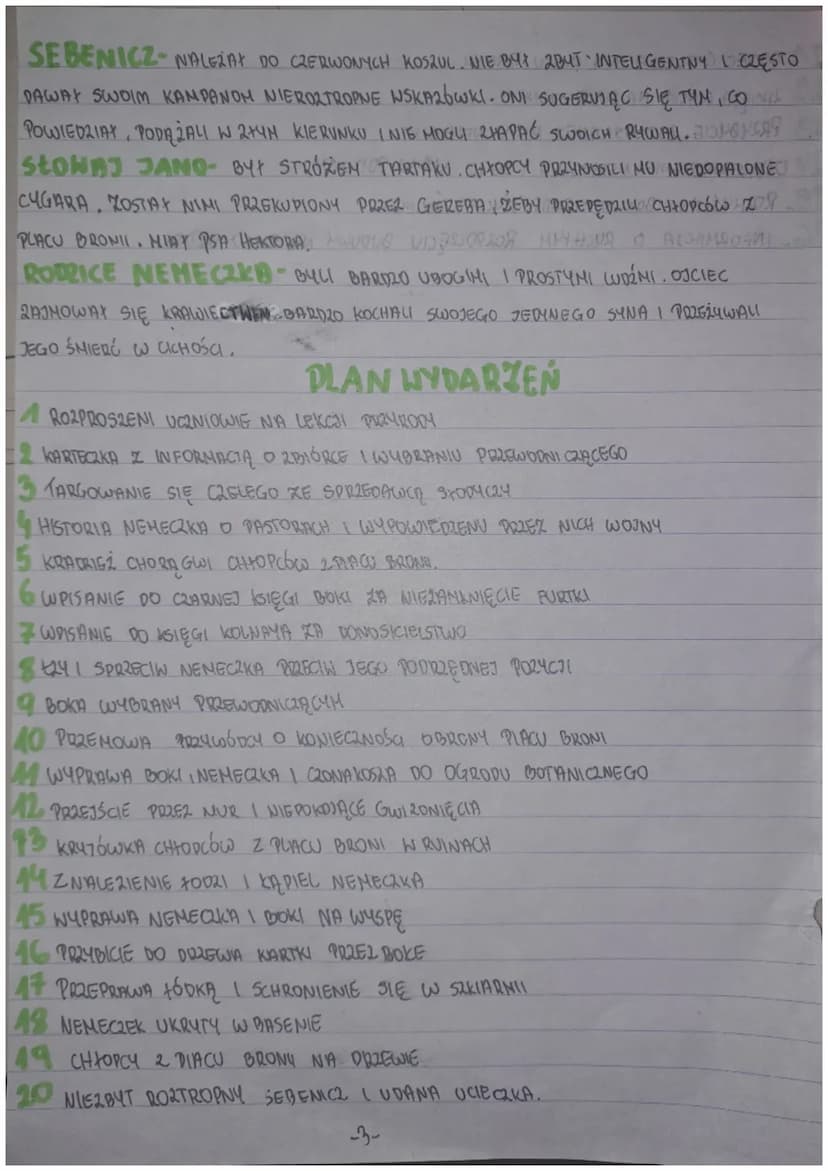 SEBENICZ- NALEŻAŁ DO CZERWONYCH KOSZUL. NIE BYŁ ZBYT INTELIGENTNY I CZĘSTO
DAWAŁ SWOIM KAMPANOM NIEROZTROPNE WSKAZÓWKI. ONI SUGERUJĄC SIĘ TYM, CO
POWIEDZIAŁ, PODĄŻALI W ZŁYM KIERUNKU I NIE MOGLI ZŁAPAĆ SWOICH RYWALI.
SŁOWAJ JANO- BYŁ STRÓŻEM TARTAKU. CHŁOPCY PRZYNOSILI MU NIEDOPALONE
CYGARA. ZOSTAŁ NIMI PRZEKUPIONY PRZEZ GEREBA, ŻEBY PRZEPĘDZIŁ CHŁOPCÓW Z
PLACU BRONII. MIAŁ PSA HEKTORA.
RODZICE NEMECZKA- BYLI BARDZO UBOGIMI I PROSTYMI LUDŹMI. OJCIEC
ZAJMOWAŁ SIĘ KRAWIECTWEM. BARDZO KOCHALI SWOJEGO JEDYNEGO SYNA I PRZEŻYWALI
JEGO ŚMIERĆ W CICHOŚCI.
PLAN WYDARZEŃ
1 ROZPROSZENI UCZNIOWIE NA LEKCJI PRZYRODY
2 KARTECZKA Z INFORMACJĄ O ZBIÓRCE I WYBRANIU PRZEWODNICZĄCEGO
3 TARGOWANIE SIĘ CZELEGO ZE SPRZEDAWCĄ SŁODYCZY
4 HISTORIA NEMECZKA O PASTORACH I WYPOWIEDZENIU PRZEZ NICH WOJNY
5 KRADZIEŻ CHORĄGWI CHŁOPCÓW Z PLACU BRONI.
6 WPISANIE DO CZARNEJ KSIĘGI BOKI ZA NIEZAMKNIĘCIE FURTKI
7 WPISANIE DO KSIĘGI KOLNAYA ZA DONOSICIELSTWO
8 ŁZY I SPRZECIW NEMECZKA PRZECIW JEGO PODRZĘDNEJ POZYCJI
9 BOKA WYBRANY PRZEWODNICZĄCYM
10 PRZEMOWA PRZYWÓDCY O KONIECZNOŚCI OBRONY PLACU BRONI
11 WYPRAWA BOKI, NEMECZKA I CZONAKOSZA DO OGRODU BOTANICZNEGO
12 PRZEJŚCIE PRZEZ MUR I NIEPOKOJĄCE GWIZDNIĘCIA
13 KRYJÓWKA CHŁOPCÓW Z PLACU BRONI W RUINACH
14 ZNALEZIENIE ŁODZI I KĄPIEL NEMECZKA
15 WYPRAWA NEMECZKA I BOKI NA WYSPĘ
16 PRZYBICIE DO DRZEWA KARTKI PRZEZ BOKE
17 PRZEPRAWA ŁÓDKĄ I SCHRONIENIE SIĘ W SZKLARNII
18 NEMECZEK UKRYTY W BASENIE
19 CHŁOPCY Z PLACU BRONY NA DRZEWIE
20 NIEZBYT ROZTROPNY SEBENICZ I UDANA UCIECZKA.
-3-